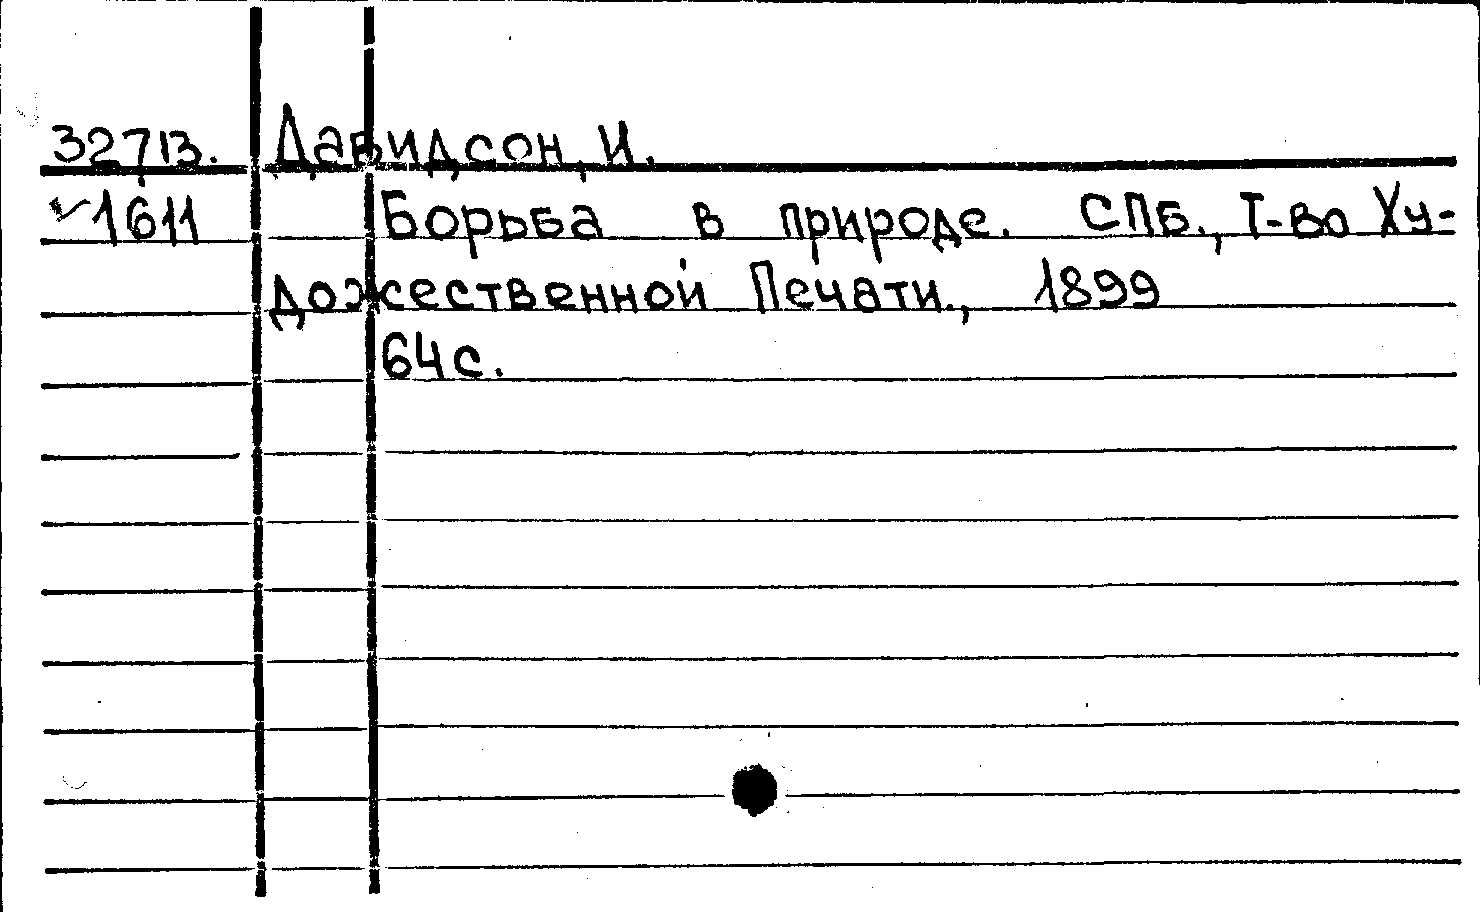 32713. Давидсон, И.
1611 Борьба в природе. СПб., Т-во Ху-
дожественной Печати., 1899
64 с.